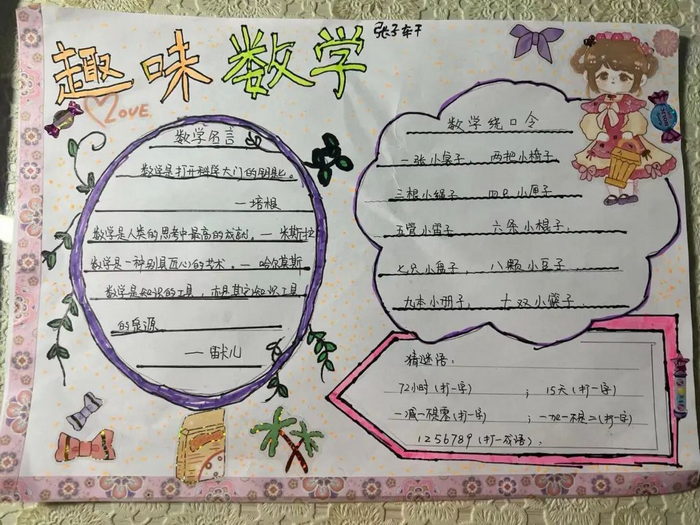 趣味数学
LOVE
数学名言
数学是打开科学大门的钥匙。
—培根
数学是人类的思考中最高的成就，— 米斯拉
数学是一种别具匠心的艺术。— 哈尔莫斯
数学是知识的工具，亦是其它知识工具
的泉源
—笛卡儿
数学绕口令
一张小桌子， 两把小椅子
三根小绳子 四只小匣子
五管小笛子 六条小棍子，
七只小盘子， 八颗小豆子
九本小册子， 十双小筷子．
猜谜语：
72小时（打一字） ； 15天（打一字）
一减一不是零（打一字） ； 一加一不是二（打一字）
1256789（打一成语）；